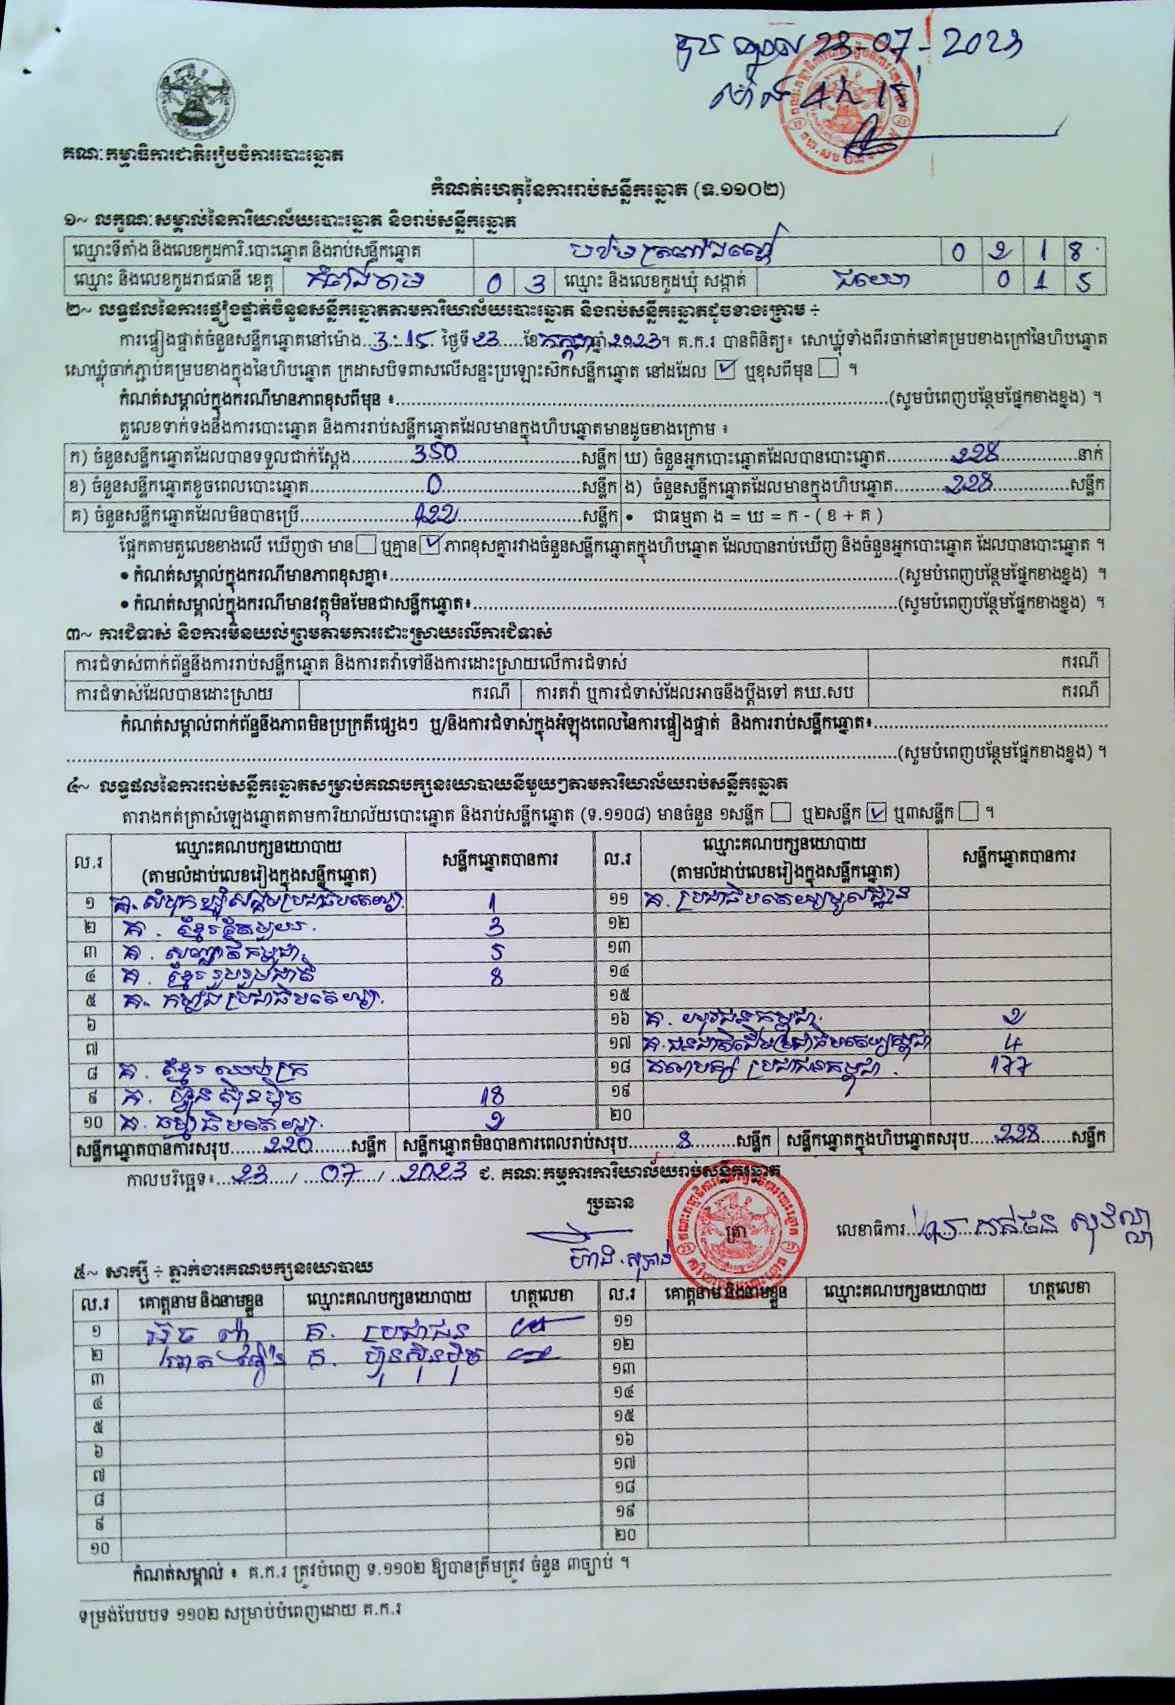 23-07-2023
គណៈកម្មាធិការជាតិរៀបចំការបោះឆ្នោត
កំណត់ហេតុនៃការរាប់សន្លឹកឆ្នោត (ទ.១១០២)
១~ លក្ខណៈសម្គាល់នៃការិយាល័យបោះឆ្នោត និងរាប់សន្លឹកឆ្នោត
ឈ្មោះទីតាំង និងលេខកូដការិ.បោះឆ្នោត និងរាប់សន្លឹកឆ្នោត 0 2 1 8
ឈ្មោះ និងលេខកូដរាជធានី ខេត្ត កំពង់ចាម 0 3 ឈ្មោះ និងលេខកូដឃុំ សង្កាត់ 0 1 5
២~ លទ្ធផលនៃការផ្ទៀងផ្ទាត់ចំនួនសន្លឹកឆ្នោតតាមការិយាល័យបោះឆ្នោត និងរាប់សន្លឹកឆ្នោតដូចខាងក្រោម ÷
ការផ្ទៀងផ្ទាត់ចំនួនសន្លឹកឆ្នោតនៅម៉ោង 3:15 ថ្ងៃទី 23 ខែ កក្កដា ឆ្នាំ 2023។ គ.ក.រ បានពិនិត្យ៖ សោឃ្លុំទាំងពីរចាក់នៅគម្របខាងក្រៅនៃហិបឆ្នោត
សោឃ្លុំចាក់ភ្ជាប់គម្របខាងក្នុងនៃហិបឆ្នោត ក្រដាសបិទពាសលើសន្ទះប្រឡោះស៊កសន្លឹកឆ្នោត នៅដដែល ☑ ឬខុសពីមុន ☐ ។
កំណត់សម្គាល់ក្នុងករណីមានភាពខុសពីមុន ៖..........(សូមបំពេញបន្ថែមផ្នែកខាងខ្នង) ។
តួលេខទាក់ទងនឹងការបោះឆ្នោត និងការរាប់សន្លឹកឆ្នោតដែលមានក្នុងហិបឆ្នោតមានដូចខាងក្រោម ៖
ក) ចំនួនសន្លឹកឆ្នោតដែលបានទទួលជាក់ស្តែង 350 សន្លឹក ឃ) ចំនួនអ្នកបោះឆ្នោតដែលបានបោះឆ្នោត 228 នាក់
ខ) ចំនួនសន្លឹកឆ្នោតខូចពេលបោះឆ្នោត 0 សន្លឹក ង) ចំនួនសន្លឹកឆ្នោតដែលមានក្នុងហិបឆ្នោត 228 សន្លឹក
គ) ចំនួនសន្លឹកឆ្នោតដែលមិនបានប្រើ 122 សន្លឹក • ជាធម្មតា ង = ឃ = ក - ( ខ + គ )
ផ្អែកតាមតួលេខខាងលើ ឃើញថា មាន ☐ ឬគ្មាន ☑ ភាពខុសគ្នារវាងចំនួនសន្លឹកឆ្នោតក្នុងហិបឆ្នោត ដែលបានរាប់ឃើញ និងចំនួនអ្នកបោះឆ្នោត ដែលបានបោះឆ្នោត ។
• កំណត់សម្គាល់ក្នុងករណីមានភាពខុសគ្នា៖..........(សូមបំពេញបន្ថែមផ្នែកខាងខ្នង) ។
• កំណត់សម្គាល់ក្នុងករណីមានវត្ថុមិនមែនជាសន្លឹកឆ្នោត៖..........(សូមបំពេញបន្ថែមផ្នែកខាងខ្នង) ។
៣~ ការជំទាស់ និងការមិនយល់ព្រមតាមការដោះស្រាយលើការជំទាស់
ការជំទាស់ពាក់ព័ន្ធនឹងការរាប់សន្លឹកឆ្នោត និងការតវ៉ាទៅនឹងការដោះស្រាយលើការជំទាស់ ករណី
ការជំទាស់ដែលបានដោះស្រាយ ករណី ការតវ៉ា ឬការជំទាស់ដែលអាចនឹងប្តឹងទៅ គឃ.សប ករណី
កំណត់សម្គាល់ពាក់ព័ន្ធនឹងភាពមិនប្រក្រតីផ្សេងៗ ឬ/និងការជំទាស់ក្នុងអំឡុងពេលនៃការផ្ទៀងផ្ទាត់ និងការរាប់សន្លឹកឆ្នោត៖..........
..........(សូមបំពេញបន្ថែមផ្នែកខាងខ្នង) ។
៤~ លទ្ធផលនៃការរាប់សន្លឹកឆ្នោតសម្រាប់គណបក្សនយោបាយនីមួយៗតាមការិយាល័យរាប់សន្លឹកឆ្នោត
តារាងកត់ត្រាសំឡេងឆ្នោតតាមការិយាល័យបោះឆ្នោត និងរាប់សន្លឹកឆ្នោត (ទ.១១០៨) មានចំនួន ១សន្លឹក ☐ ឬ២សន្លឹក ☑ ឬ៣សន្លឹក ☐ ។
ល.រ ឈ្មោះគណបក្សនយោបាយ (តាមលំដាប់លេខរៀងក្នុងសន្លឹកឆ្នោត) សន្លឹកឆ្នោតបានការ ល.រ ឈ្មោះគណបក្សនយោបាយ (តាមលំដាប់លេខរៀងក្នុងសន្លឹកឆ្នោត) សន្លឹកឆ្នោតបានការ
១ គ. សំបុកឃ្មុំសង្គមប្រជាធិបតេយ្យ 1 ១១ គ. ប្រជាធិបតេយ្យមូលដ្ឋាន
២ គ. ខ្មែរតែមួយ 3 ១២
៣ គ. សញ្ជាតិកម្ពុជា 5 ១៣
៤ គ. ខ្មែររួបរួមជាតិ 8 ១៤
៥ គ. កម្លាំងប្រជាធិបតេយ្យ ១៥
៦ ១៦ គ. យុវជនកម្ពុជា 2
៧ ១៧ គ. ជនជាតិដើមប្រជាធិបតេយ្យកម្ពុជា 4
៨ គ. ខ្មែរឈប់ក្រ ១៨ គណបក្ស ប្រជាជនកម្ពុជា 177
៩ គ. ហ៊្វុនស៊ិនប៉ិច 18 ១៩
១០ គ. ធម្មាធិបតេយ្យ 2 ២០
សន្លឹកឆ្នោតបានការសរុប 220 សន្លឹក សន្លឹកឆ្នោតមិនបានការពេលរាប់សរុប 8 សន្លឹក សន្លឹកឆ្នោតក្នុងហិបឆ្នោតសរុប 228 សន្លឹក
កាលបរិច្ឆេទ៖ 23 / 07 / 2023 ជ. គណៈកម្មការការិយាល័យរាប់សន្លឹកឆ្នោត
ប្រធាន
ត្រា លេខាធិការ
៥~ សាក្សី ÷ ភ្នាក់ងារគណបក្សនយោបាយ
ល.រ គោត្តនាម និងនាមខ្លួន ឈ្មោះគណបក្សនយោបាយ ហត្ថលេខា ល.រ គោត្តនាម និងនាមខ្លួន ឈ្មោះគណបក្សនយោបាយ ហត្ថលេខា
១ គ. ប្រជាជន ១១
២ គ. ហ៊្វុនស៊ិនប៉ិច ១២
៣ ១៣
៤ ១៤
៥ ១៥
៦ ១៦
៧ ១៧
៨ ១៨
៩ ១៩
១០ ២០
កំណត់សម្គាល់ ៖ គ.ក.រ ត្រូវបំពេញ ទ.១១០២ ឱ្យបានត្រឹមត្រូវ ចំនួន ៣ច្បាប់ ។
ទម្រង់បែបបទ ១១០២ សម្រាប់បំពេញដោយ គ.ក.រ